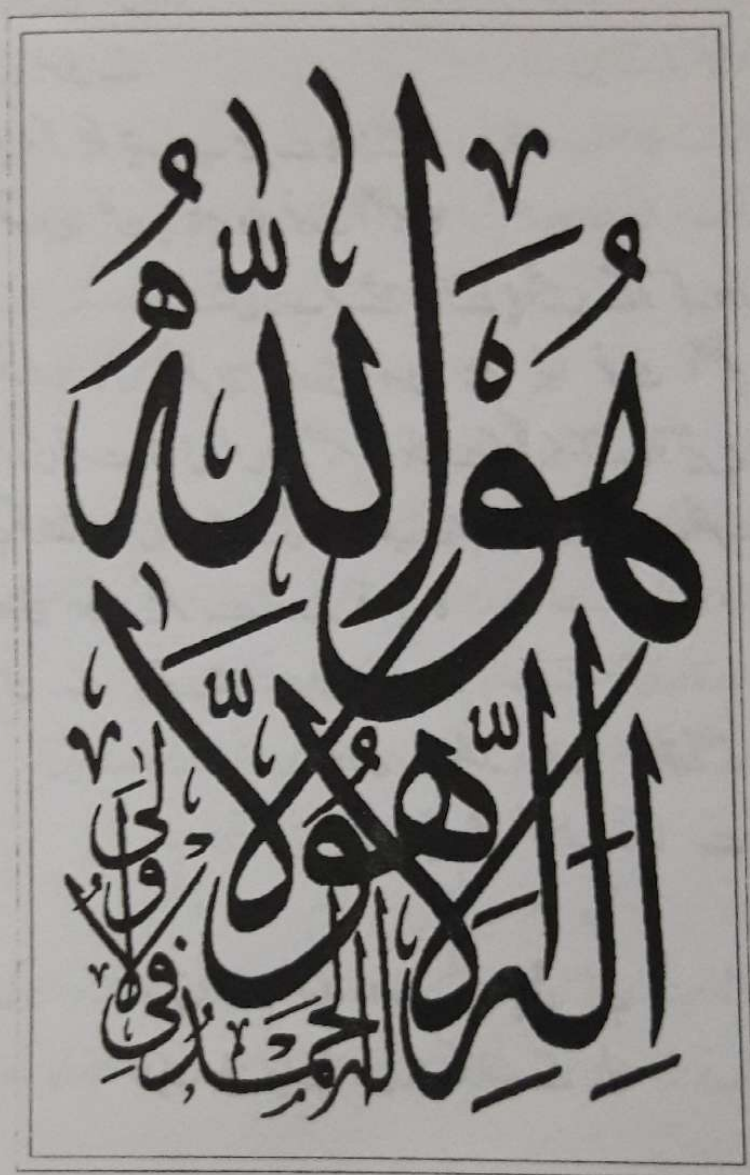 هُوَ اللّٰهُ
لَا إِلٰهَ إِلَّا هُوَ
لَهُ الْحَمْدُ فِي
الْأُولَى